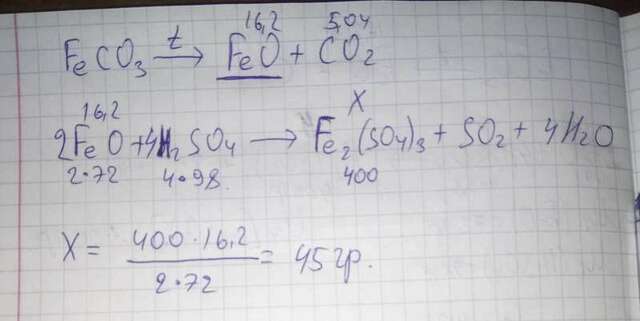 16,2 5,04
FeCO₃ →t FeO + CO₂
16,2 X
2FeO + 4H₂SO₄ → Fe₂(SO₄)₃ + SO₂ + 4H₂O
2·72 4·98. 400
X = 400·16,2 / 2·72 = 45 гр.